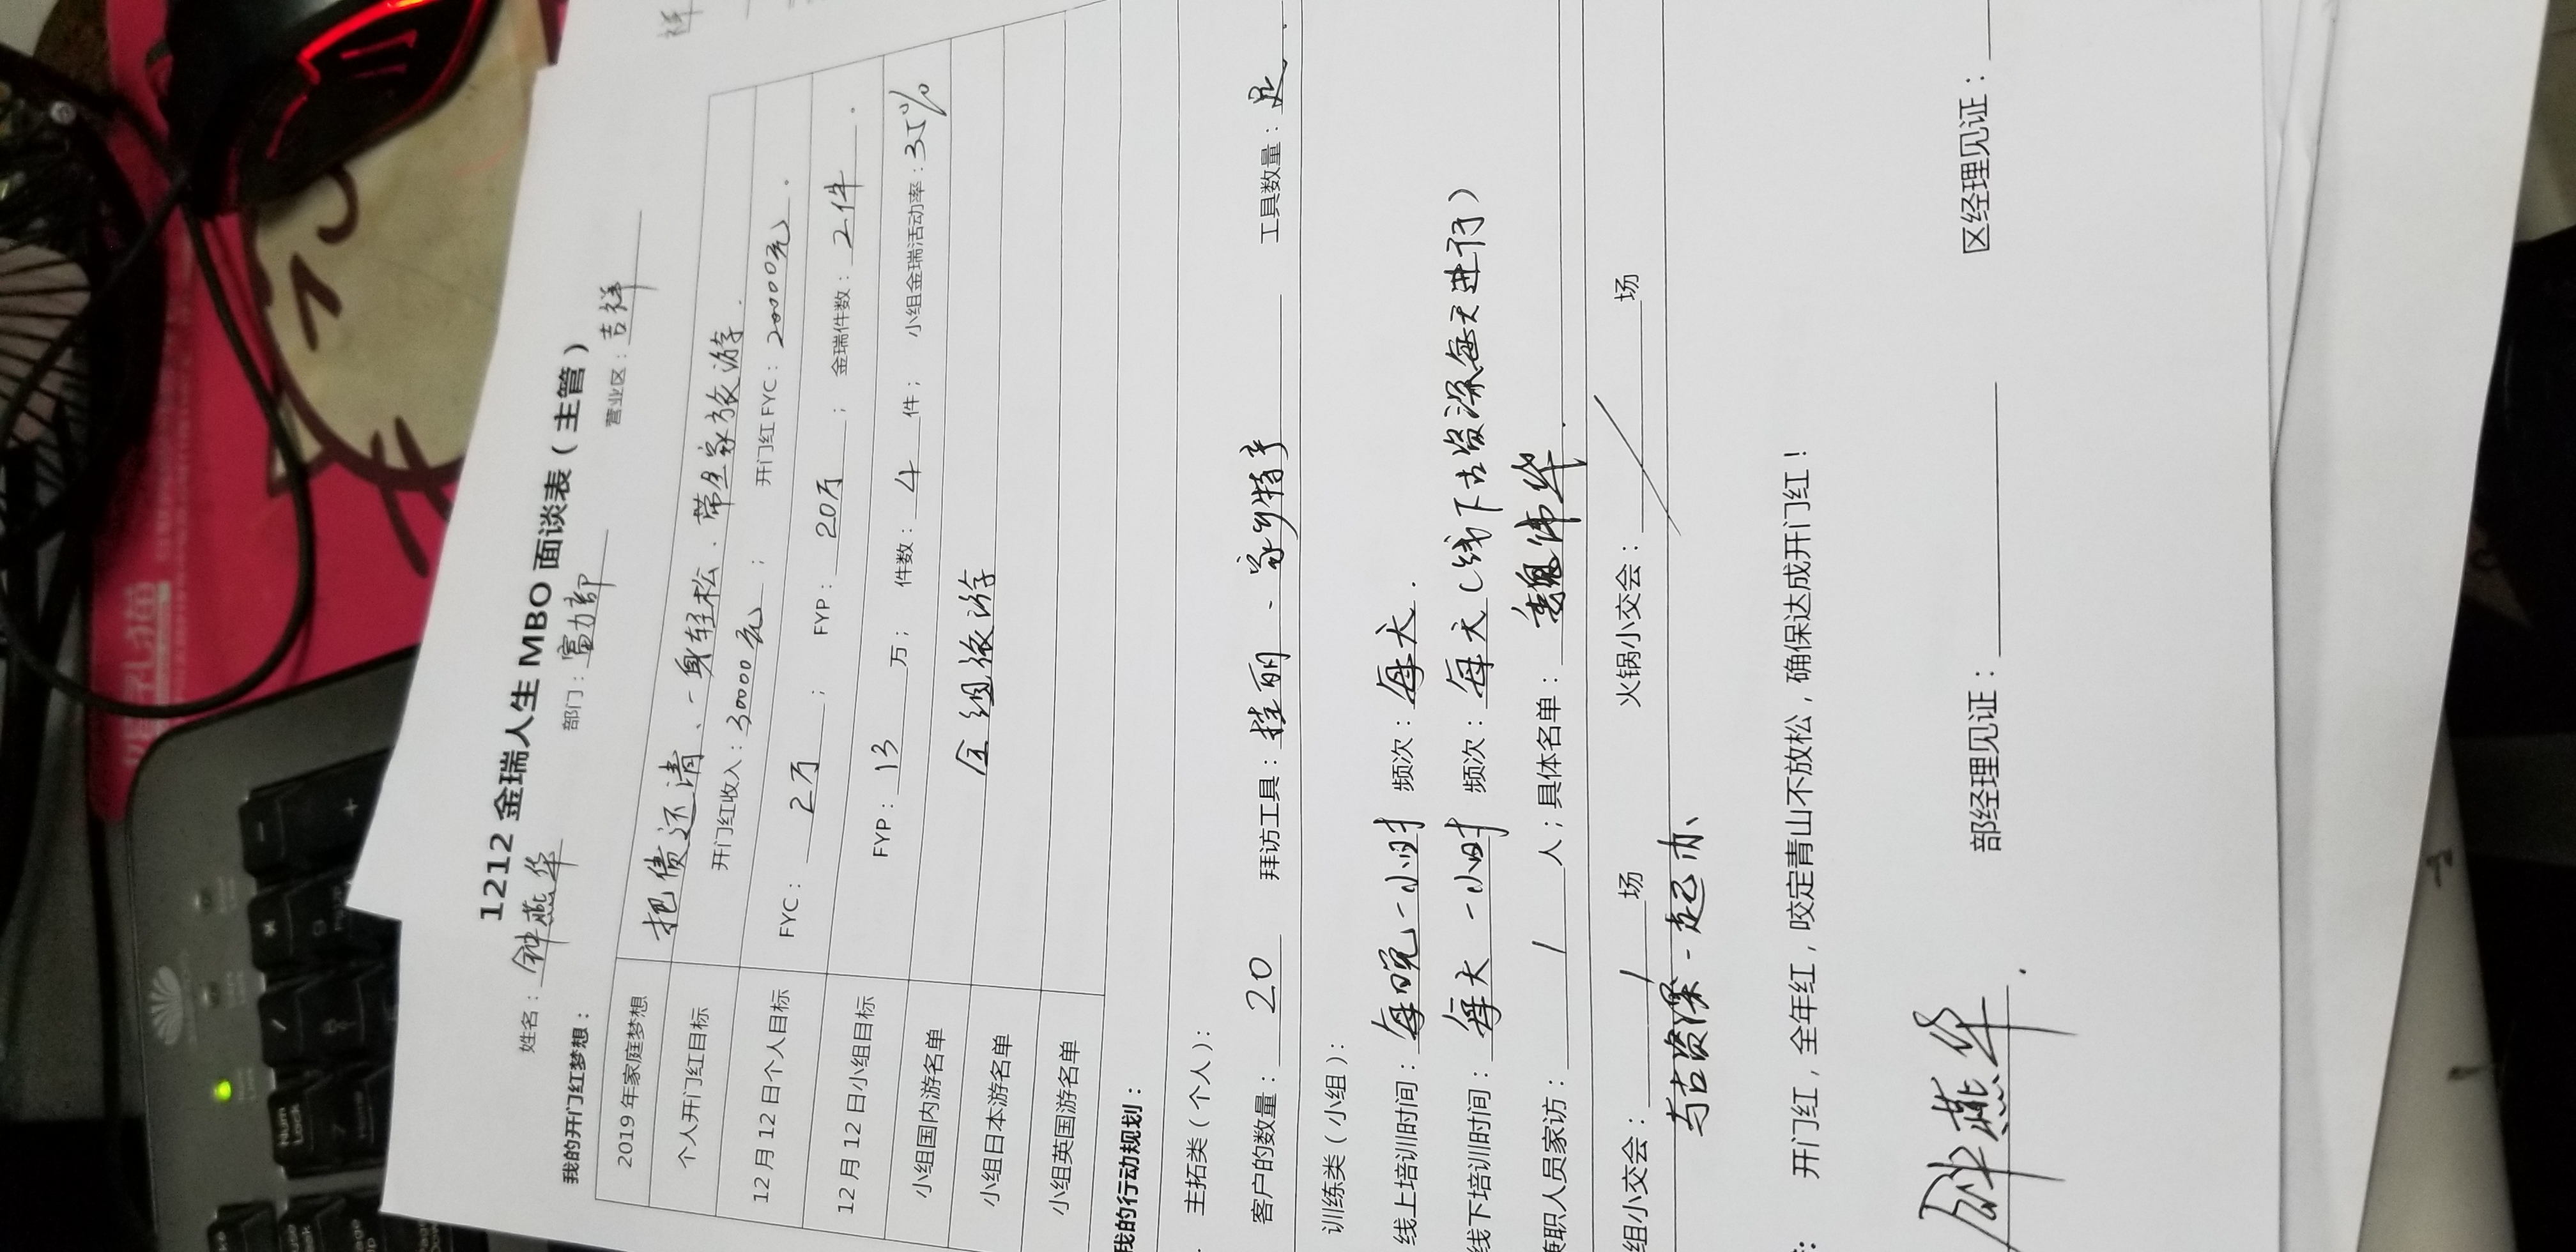 1212 金瑞人生 MBO 面谈表（主管）
姓名：钟燕华 部门：富力部 营业区：吉祥
我的开门红梦想：
2019 年家庭梦想 把债还清、一身轻松、带全家旅游.
个人开门红目标 开门红收入：30000元； 开门红 FYC：20000元.
12 月 12 日个人目标 FYC：2万； FYP：20万； 金瑞件数：2件.
12 月 12 日小组目标 FYP：13万； 件数：4件； 小组金瑞活动率：35%
小组国内游名单
小组日本游名单 全组旅游
小组英国游名单
我的行动规划：
主拓类（个人）：
客户的数量：20 拜访工具：挂丽、家乡特产 工具数量：足.
训练类（小组）：
线上培训时间：每晚一小时 频次：每天.
线下培训时间：每天一小时 频次：每天（线下古资深每天进行）
兼职人员家访：/人；具体名单：魏伟华.
组小交会：/场 火锅小交会：/场
与古资深一起办
开门红，全年红，咬定青山不放松，确保达成开门红！
钟燕华. 部经理见证： 区经理见证：
Num Lock
祥